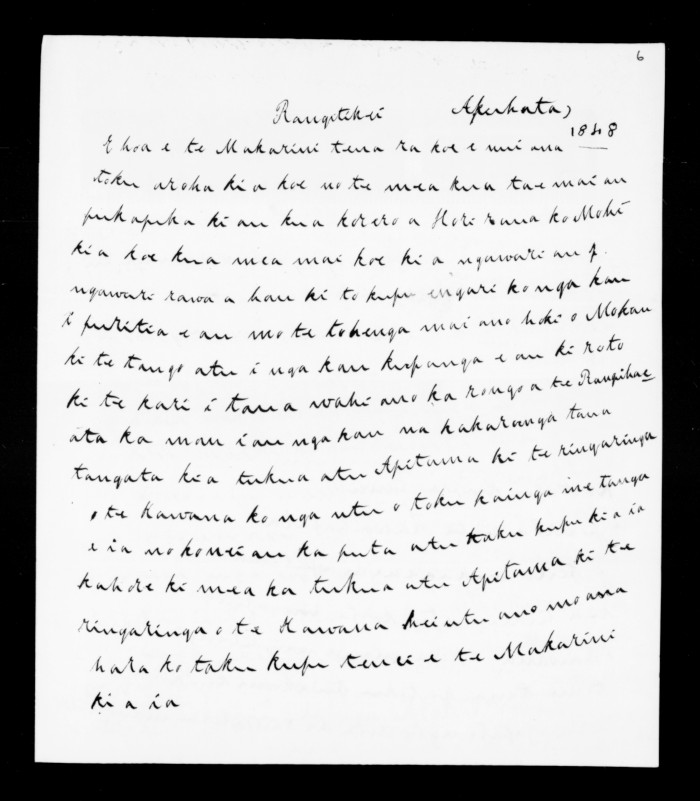 6
Rangitikei Aperhata,
1848
E hoa e te Makarini tena ra koe e nui ana
toku aroha ki a koe no te mea kua tae mai au
pukapuka ki au kua korero a Hori raua ko Mohi
ki a koe kua mea mai koe ki a ngawari au
ngawari rawa a hau ki to kupu engari ko nga kau
i puritia e au mo te tohenga mai ano hoki o Mokau
ki te tango atu i nga kau kupanga e au ki roto
ki te kari i tana wahi ano ka rongo a te Rangihae
ata ka mau i au nga kau na kakaraunga tana
tangata kia tukua atu Apitama ki te ringaringa
o te Kawana ko nga utu o toku kainga me tango
e ia no konei au ka puta atu taku kupu ki a ia
kahore ki mea ka tukua atu Apitama ki te
ringaringa o te Kawana hei utu ano mo ana
hara ko taku kupu tenei e te Makarini
ki a ia